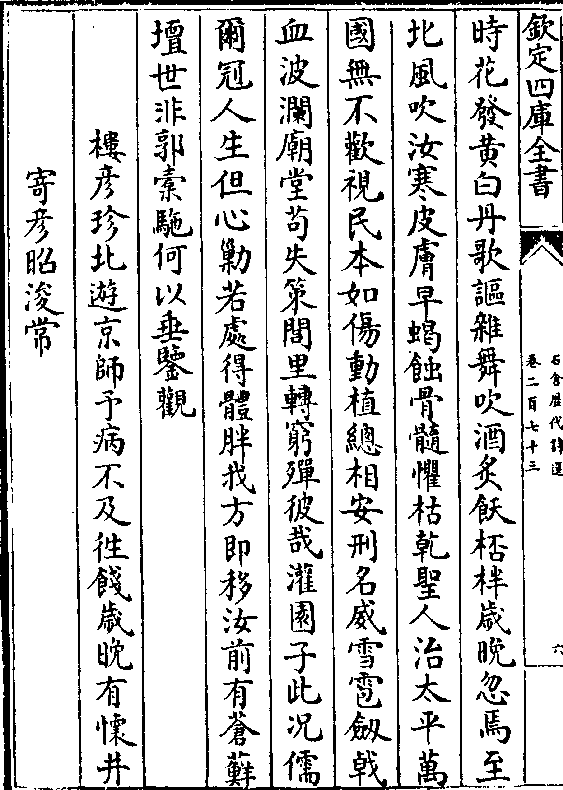 欽定四庫全書
石倉歷代詩選
卷二百七十三
六
時花發黄白丹歌謳雜舞吹酒炙飫桮柈歳晩忽焉至
北風吹汝寒皮膚早蝎蝕骨髓懼枯乾聖人治太平萬
國無不歡視民本如傷動植總相安刑名威雪雹劔戟
血波瀾廟堂苟失策閭里轉窮殫彼哉灌園子此况儒
爾冠人生但心勦若處得體胖我方即移汝前有蒼蘚
壇世非郭橐駞何以垂鑒觀
樓彦珍北遊京師予病不及徃餞歳晩有懐并
寄彦昭浚常